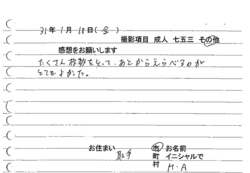 31年1月18日(金)
撮影項目 成人 七五三 その他
感想をお願いします
たくさん枚数をとって、あとからえらべるのが
とてもよかった。
お住まい 市 お名前
取手 町 イニシャルで
村 M.A